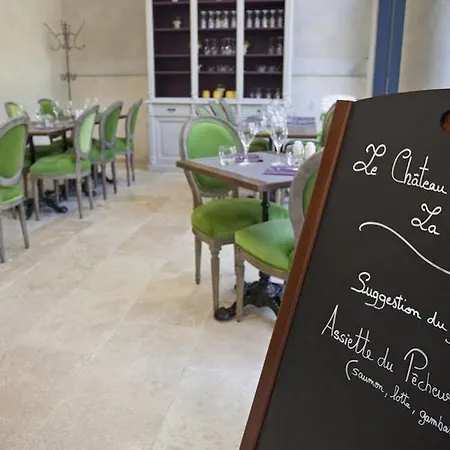 Le Château
La
Suggestion du
Assiette du Pêcheur
(saumon, lotte, gambas